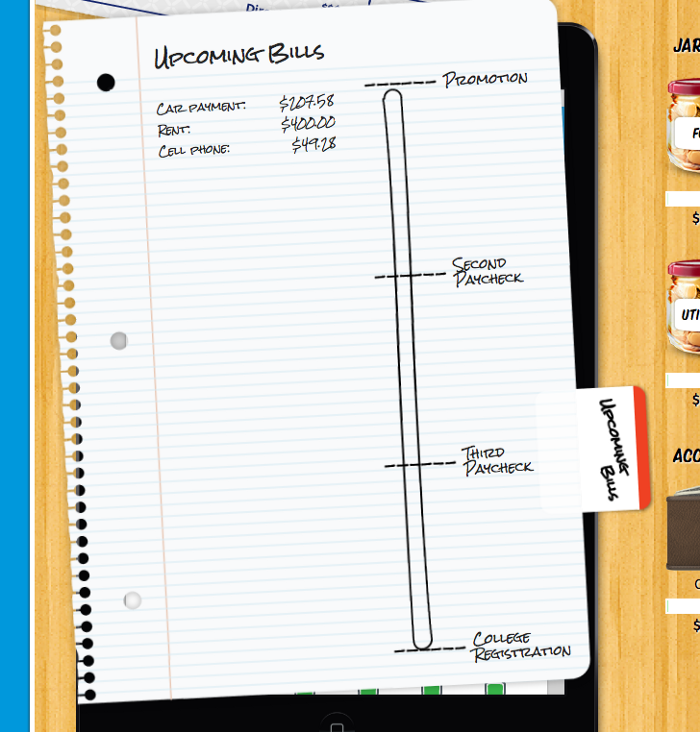 Upcoming Bills
Promotion
Car payment: $207.58
Rent: $400.00
Cell phone: $49.28
Second
Paycheck
Upcoming
Bills
Third
Paycheck
College
Registration
$
$
$